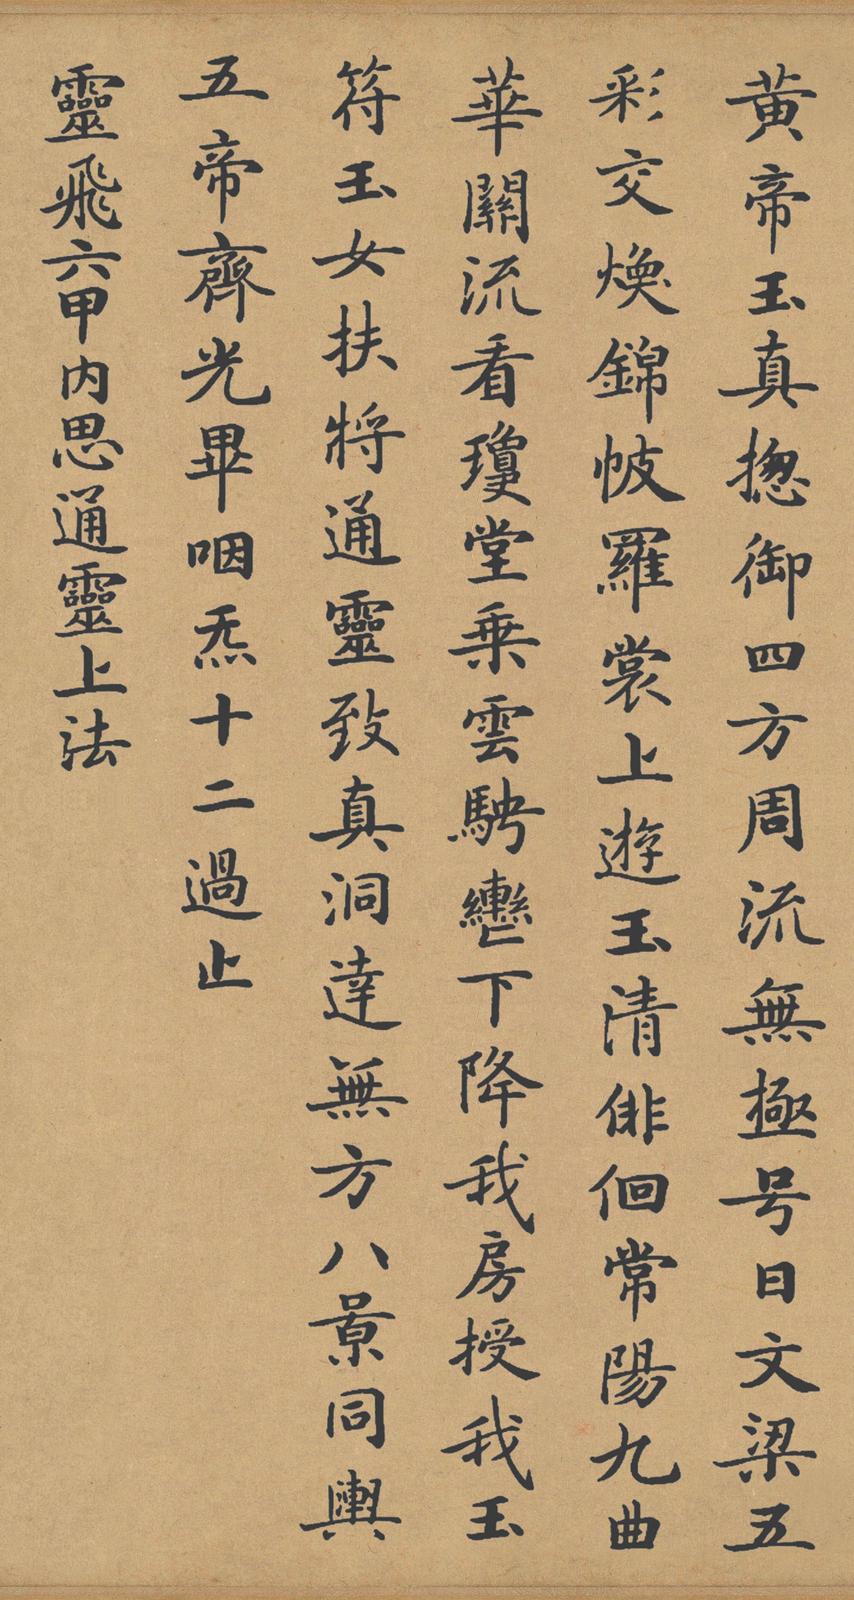 黄帝玉真揔御四方周流無極号曰文梁五
彩交煥錦帔羅裳上遊玉清俳佪常陽九曲
華關流看瓊堂乗雲駚轡下降我房授我玉
符玉女扶將通靈致真洞達無方八景同輿
五帝齊光畢咽炁十二過止
靈飛六甲内思通靈上法